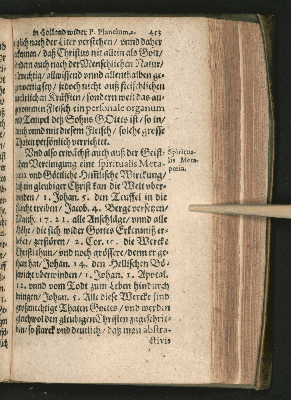 in Holland wider P. Plancium. 453
sich nach der Liter verstehen / vnnd daher
daß Christus nit allein als Gott /
sondern auch nach der Menschlichen Natur /
allwissend vnnd allenthalben ge-
jedoch nicht auß fleischlichen
Kräfften / sondern weil das an-
genommen Fleisch ein personale organum
vnd Tempel deß Sohns GOttes ist / so in /
vnd mit diesem Fleisch / solche grosse
Thaten persönlich verrichtet.
Vnd also erwächst auch auß der Geist-
lichen Vereinigung eine spiritualis Meta-
vnd Göttliche Himlische Wirckung /
daß ein gleubiger Christ kan die Welt vber-
winden / 1. Johan. 5. den Teuffel in die
Flucht treiben / Jacob. 4. Berge versetzen /
Matth. 17. 21. alle Anschläge / vnnd alle
Höhe / die sich wider Gottes Erkentniß er-
zerstören / 2. Cor. 10. die Wercke
Christi thun / vnd noch grössere / denn er ge-
than hat / Johan. 14. den Hellischen Bö-
sewicht vberwinden / 1. Johan. 1. Apocal.
12. vnnd vom Todt zum Leben hindurch
dringen / Johan. 5. Alle diese Wercke sind
Thaten Gottes / vnd werden
den gleubigen Christen zugeschrie-
ben / so starck vnd deutlich / daß man abstra-
ctivis
Spiritua-
lis Meta-
poeia.